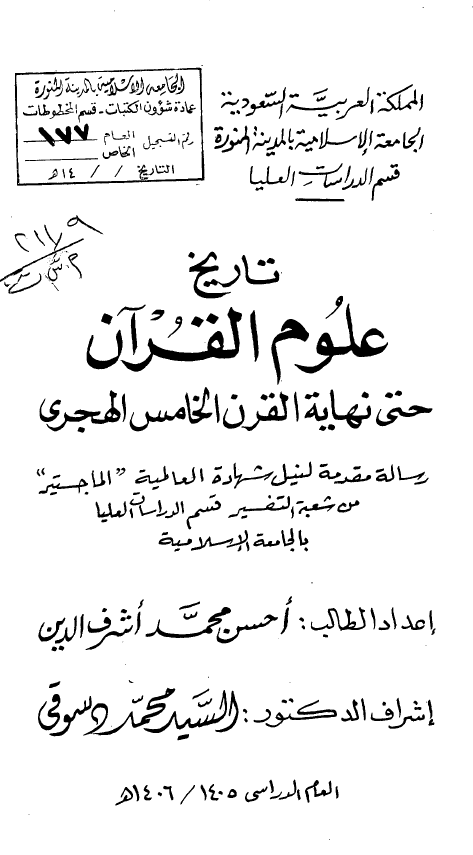 المملكة العربية السعودية
الجامعة الإسلامية بالمدينة المنورة
قسم الدراسات العليا
الجامعة الإسلامية بالمدينة المنورة
عمادة شؤون المكتبات - قسم المخطوطات
رقم التسجيل العام ١٧٧
الخاص
التاريخ / / ١٤هـ
٢١٧٩
تاريخ
علوم القرآن
حتى نهاية القرن الخامس الهجرى
رسالة مقدمة لنيل شهادة العالمية "الماجستير"
من شعبة التفسير قسم الدراسات العليا
بالجامعة الإسلامية
إعداد الطالب: أحسن محمد أشرف الدين
إشراف الدكتور: السيد محمد دسوقى
العام الدراسى ١٤٠٥ / ١٤٠٦هـ